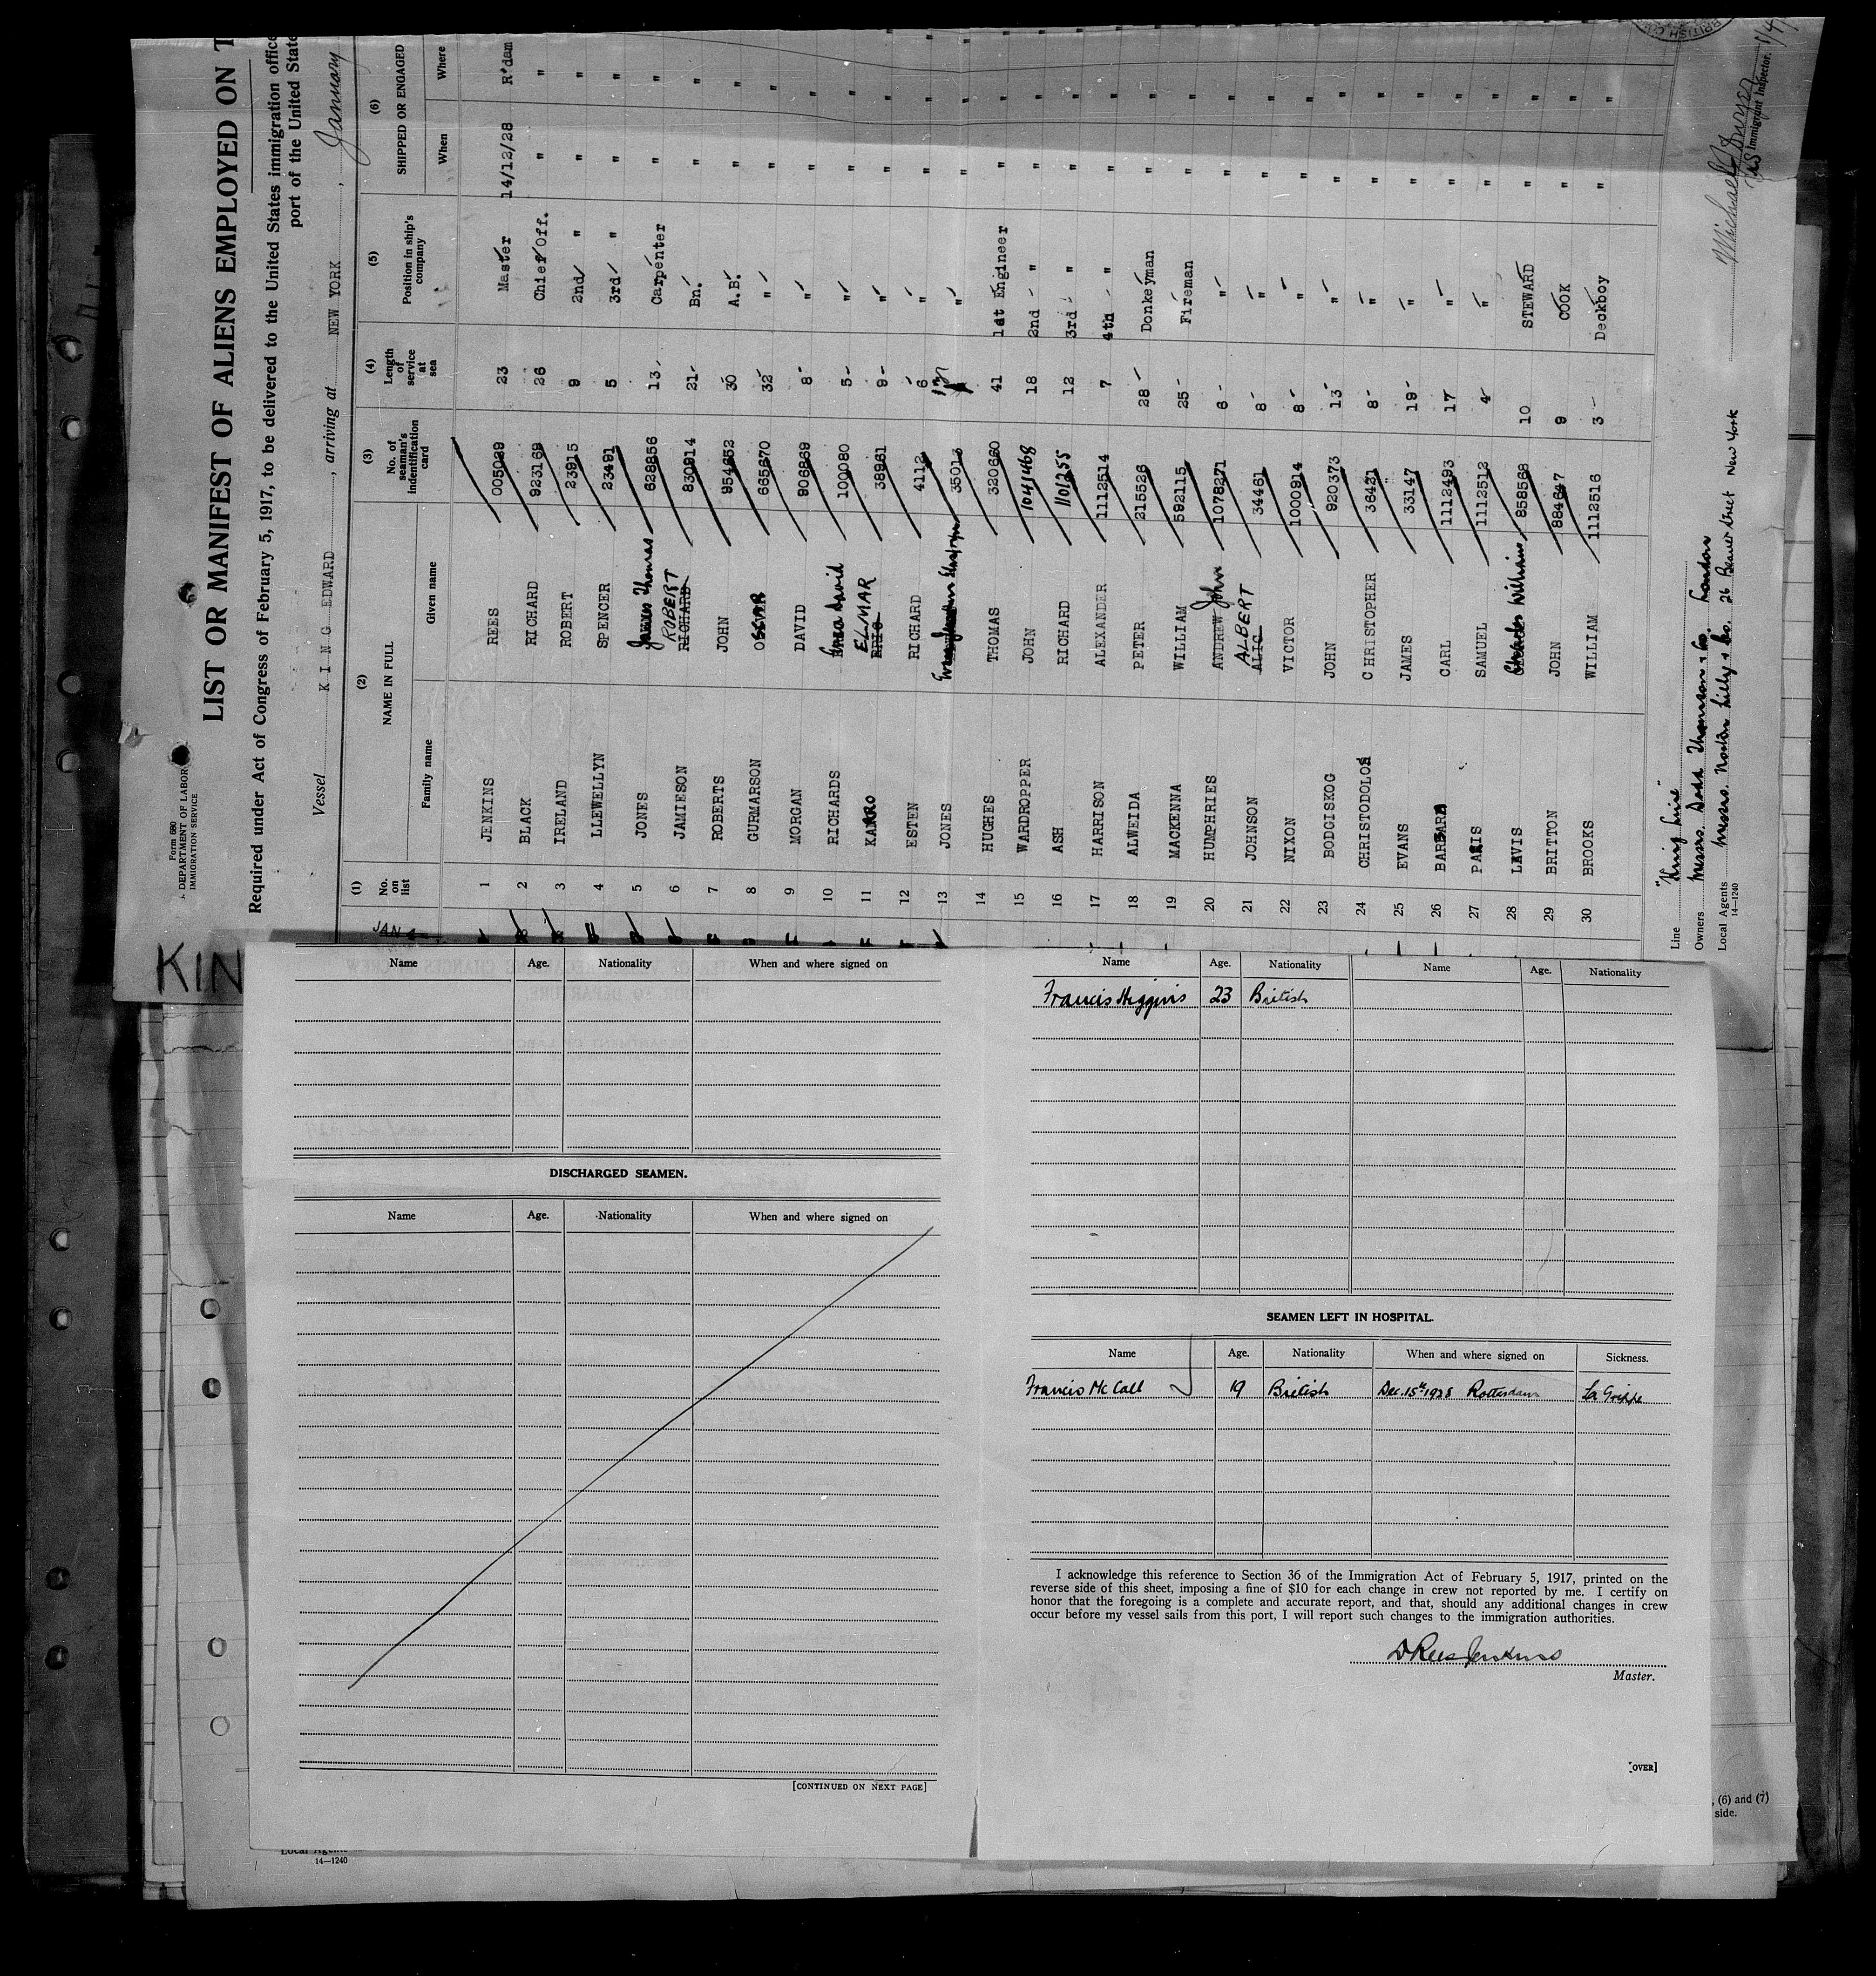 Form 680
DEPARTMENT OF LABOR
IMMIGRATION SERVICE
LIST OR MANIFEST OF ALIENS EMPLOYED ON T
Required under Act of Congress of February 5, 1917, to be delivered to the United States immigration office
port of the United State
Vessel KING EDWARD, arriving at NEW YORK, January
(1) (2) (3) (4) (5) (6)
No. on list NAME IN FULL No. of seaman's indentification card Length of service at sea Position in ship's company SHIPPED OR ENGAGED
Family name Given name When Where
1 JENKINS REES 005029 23 Master 14/12/28 R'dam
2 BLACK RICHARD 923169 26 Chief Off. " "
3 IRELAND ROBERT 23915 9 2nd " " "
4 LLEWELLYN SPENCER 23491 5 3rd " " "
5 JONES James Thomas 628856 13 Carpenter " "
6 JAMIESON ROBERT RICHARD 830914 21 Bn. " "
7 ROBERTS JOHN 954652 30 A.B. " "
8 GURMARSON 665670 32 " " "
9 MORGAN DAVID 906869 8 " " "
10 RICHARDS David 100080 5 " " "
11 KANRO ELMAR ERIC 38961 9 " " "
12 ESTEN RICHARD 4112 6 " " "
13 JONES 35013 " " "
14 HUGHES THOMAS 320660 41 1st Engineer " "
15 WARDROPPER JOHN 1041468 18 2nd " " "
16 ASH RICHARD 1101255 12 3rd " " "
17 HARRISON ALEXANDER 1112514 7 4th " " "
18 ALWEIDA PETER 215526 28 Donkeyman " "
19 MACKENNA WILLIAM 592115 25 Fireman " "
20 HUMPHRIES ANDREW John 1078271 6 " " "
21 JOHNSON ALBERT ALIC 34461 8 " " "
22 NIXON VICTOR 1000914 8 " " "
23 BODGISKOG JOHN 920373 13 " " "
24 CHRISTODOLOS CHRISTOPHER 36421 8 " " "
25 EVANS JAMES 33147 19 " " "
26 BARBARA CARL 1112493 17 " " "
27 PARIS SAMUEL 1112512 4 " " "
28 LEWIS Charles William 858568 10 STEWARD " "
29 BRITTON JOHN 884647 9 COOK " "
30 BROOKS WILLIAM 1112516 3 Deckboy " "
Line "King Line"
Owners Messrs. Dodd Thomson & Co. London
Local Agents Messrs. Norton Lilly & Co. 26 Beaver Street New York
14—1240
Immigrant Inspector.
BRITISH
JAN 4
KIN
Name Age. Nationality When and where signed on
DISCHARGED SEAMEN.
Name Age. Nationality When and where signed on
[CONTINUED ON NEXT PAGE]
Name Age. Nationality Name Age. Nationality
Francis Higgins 23 British
SEAMEN LEFT IN HOSPITAL.
Name Age. Nationality When and where signed on Sickness.
Francis McCall 19 British Dec. 15th 1928 Rotterdam La Grippe
I acknowledge this reference to Section 36 of the Immigration Act of February 5, 1917, printed on the
reverse side of this sheet, imposing a fine of $10 for each change in crew not reported by me. I certify on
honor that the foregoing is a complete and accurate report, and that, should any additional changes in crew
occur before my vessel sails from this port, I will report such changes to the immigration authorities.
D Rees Jenkins
Master.
[OVER]
, (6) and (7)
side.
Local Agents
14—1240